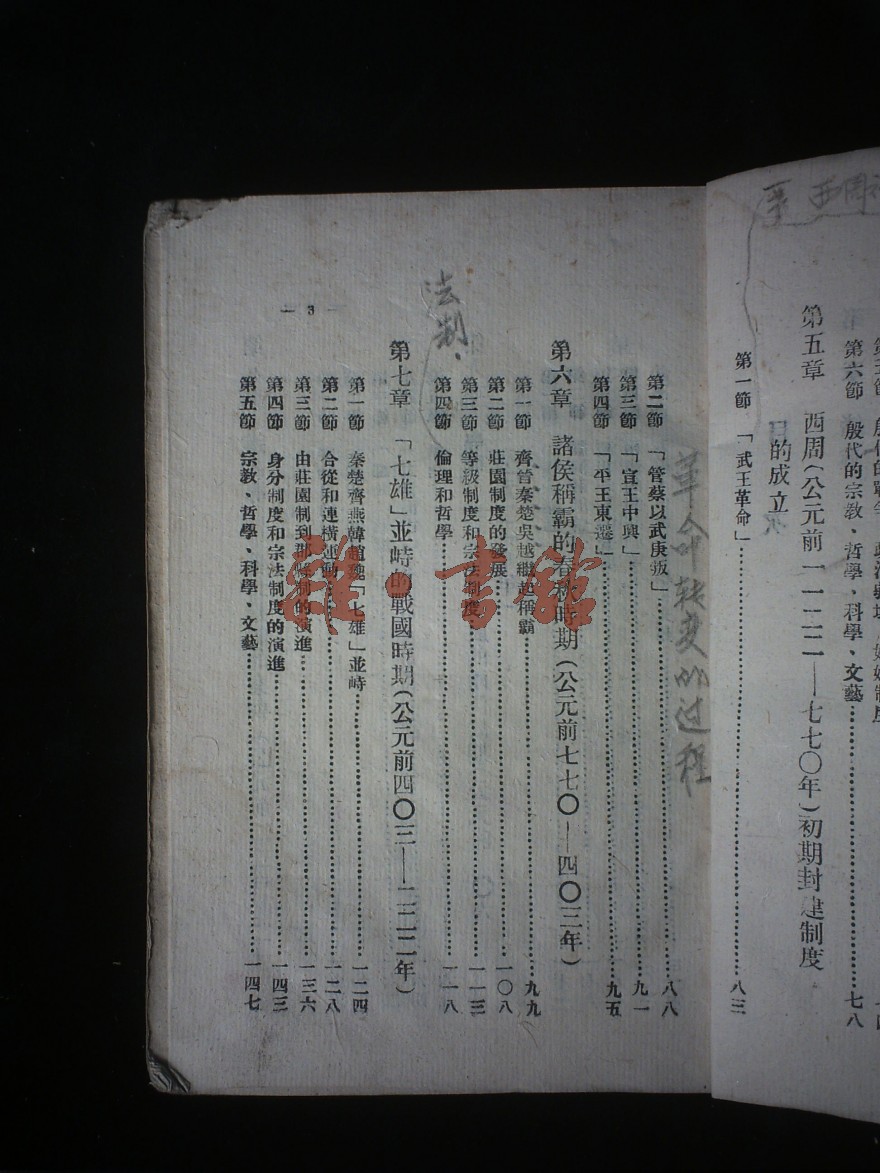 第六節 殷代的宗教、哲學、科學、文藝……七八
第五章 西周(公元前一一二二—七七〇年)初期封建制度
的成立
第一節 「武王革命」……八三
革命转变的过程
第二節 「管蔡以武庚叛」……八八
第三節 「宣王中興」……九一
第四節 「平王東遷」……九五
第六章 諸侯稱霸的春秋時期(公元前七七〇—四〇三年)
第一節 齊晉秦楚吳越繼起稱霸……九九
第二節 莊園制度的發展……一〇八
第三節 等級制度和宗法制度……一一三
第四節 倫理和哲學……一一八
法制.
第七章 「七雄」並峙的戰國時期(公元前四〇三—二二二年)
第一節 秦楚齊燕韓趙魏「七雄」並峙……一二四
第二節 合從和連橫運動……一二八
第三節 由莊園制到郡縣制的演進……一三六
第四節 身分制度和宗法制度的演進……一四三
第五節 宗教、哲學、科學、文藝……一四七
— 3 —
羅·書館